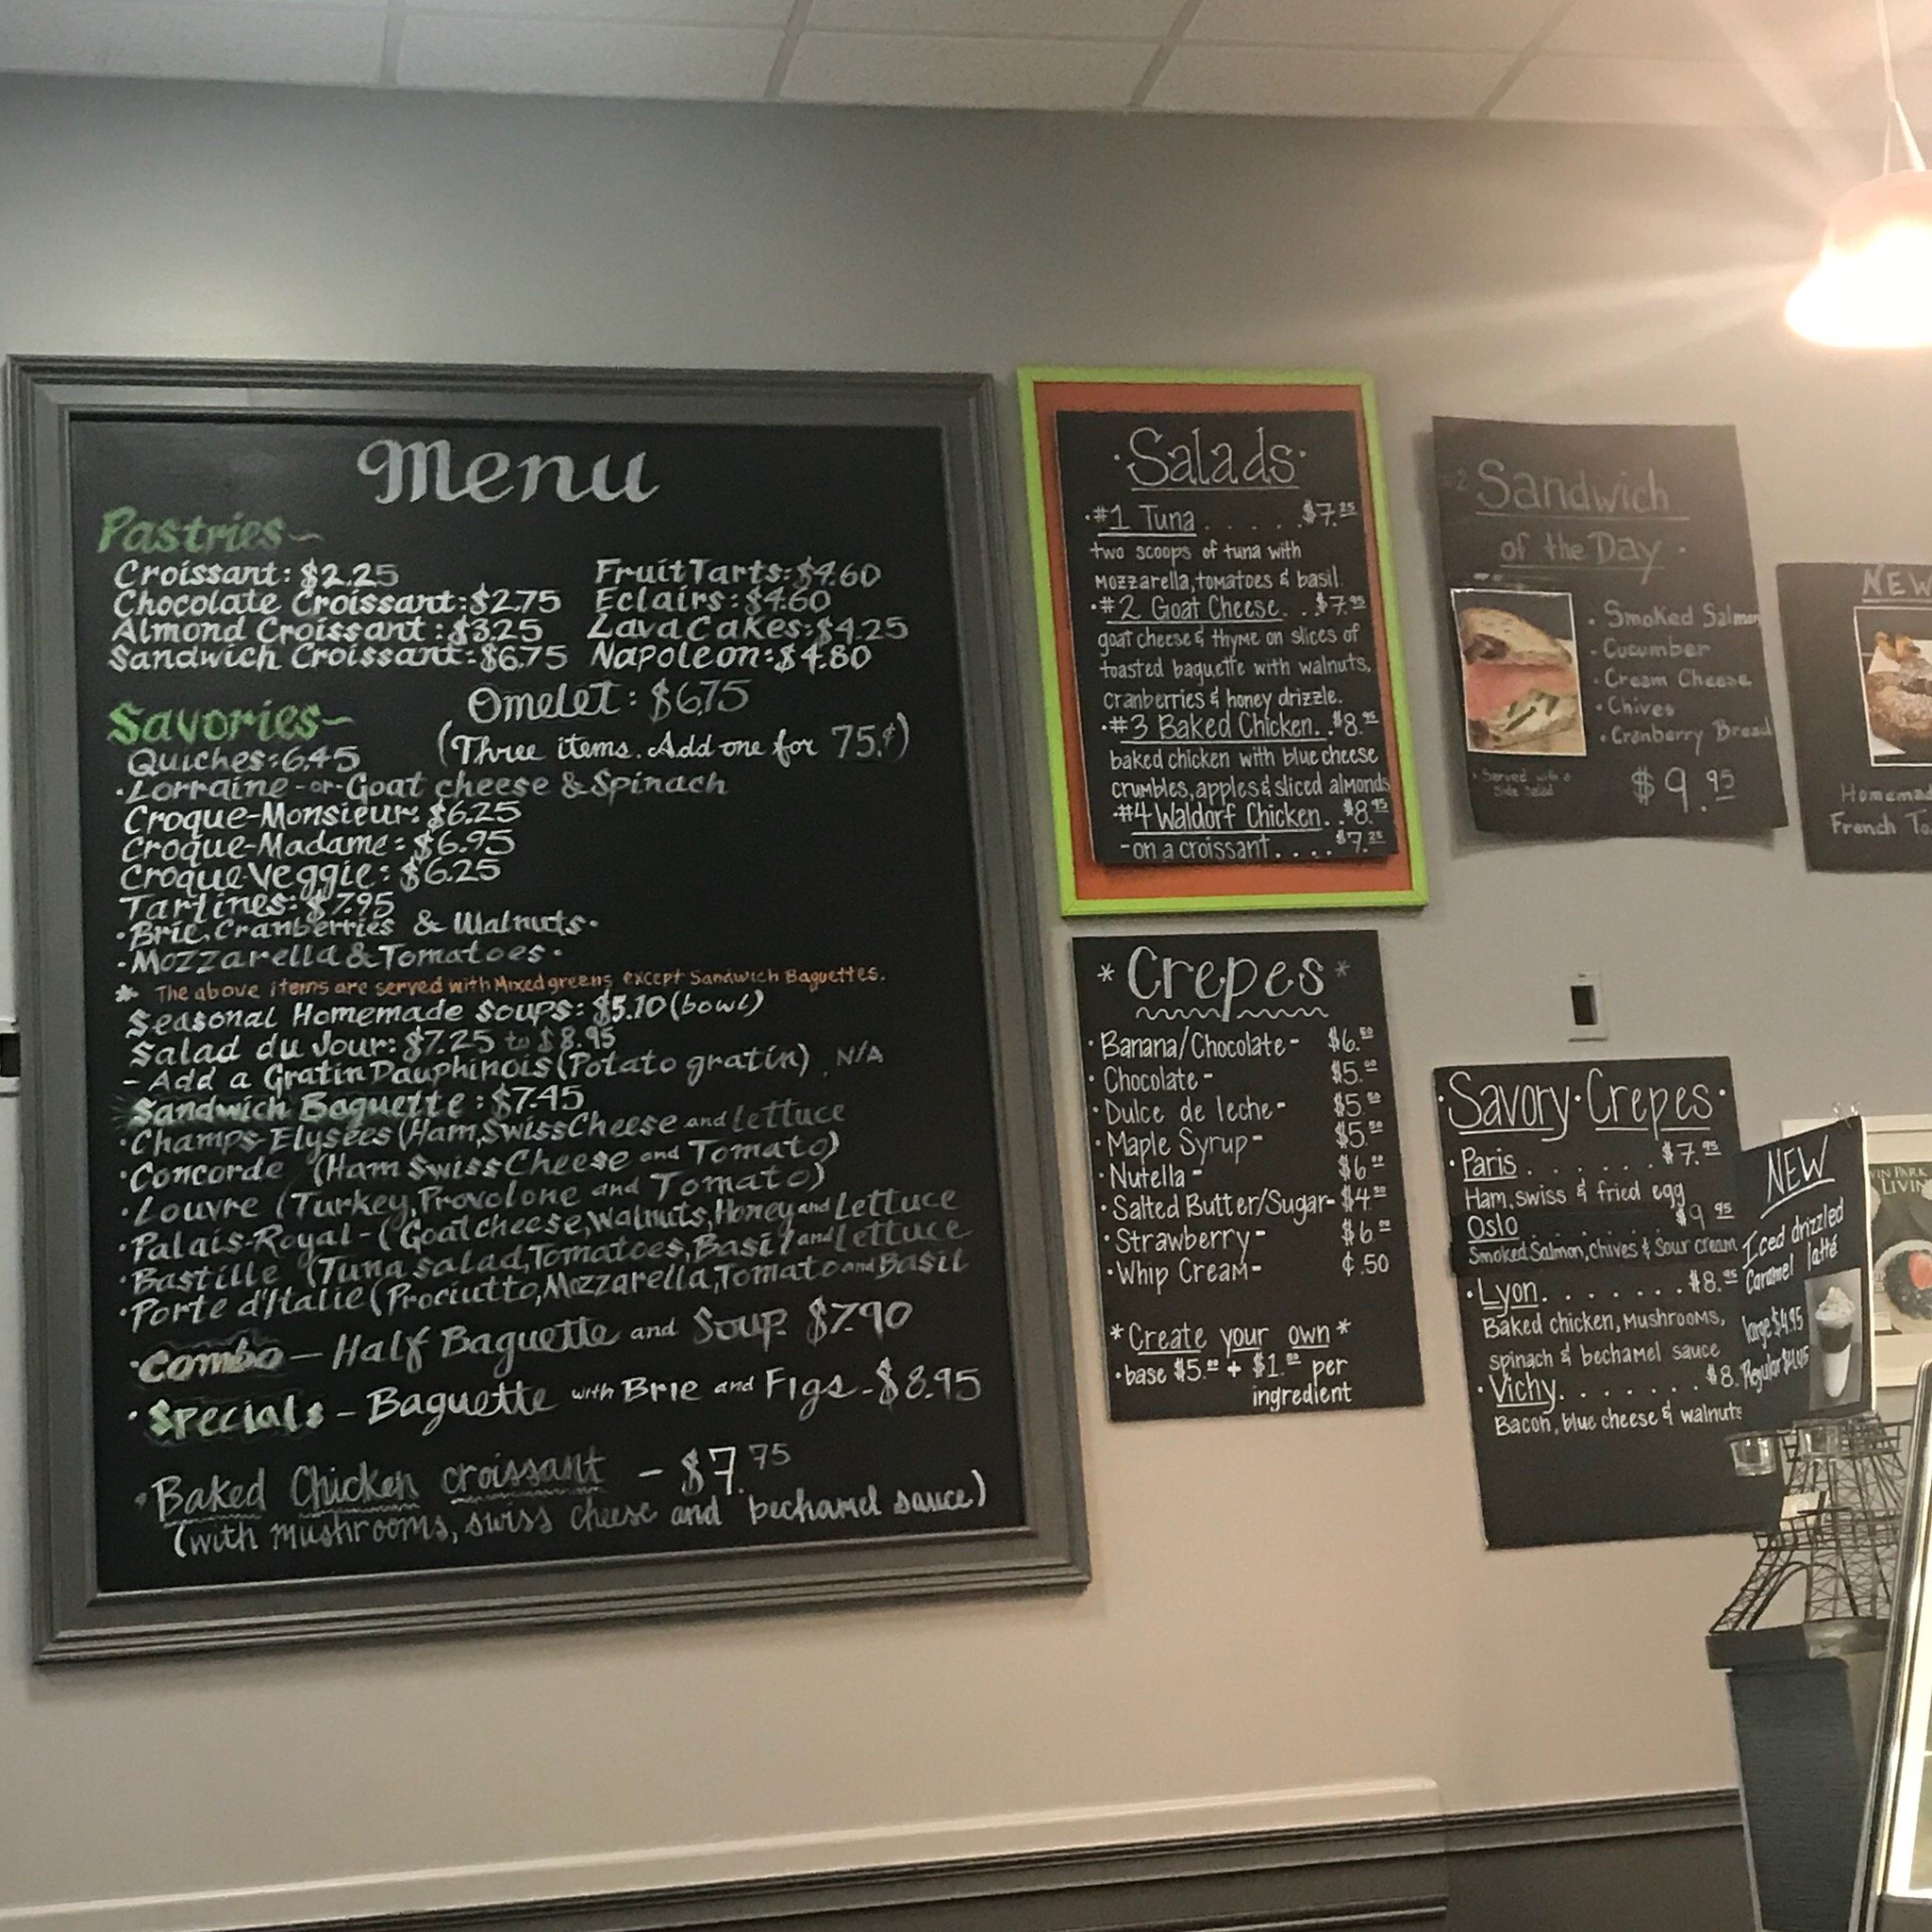 Menu
Pastries~
Croissant: $2.25
Chocolate Croissant: $2.75
Almond Croissant: $3.25
Sandwich Croissant: $6.75
Fruit Tarts: $4.60
Eclairs: $4.60
Lava Cakes: $4.25
Napoleon: $4.80
Savories~
Omelet: $6.75
(Three items. Add one for 75.¢)
Quiches: 6.45
·Lorraine -or- Goat cheese & Spinach
Croque-Monsieur: $6.25
Croque-Madame: $6.95
Croque Veggie: $6.25
Tartines: $7.95
·Brie, Cranberries & Walnuts·
·Mozzarella & Tomatoes·
* The above items are served with Mixed greens except Sandwich Baguettes.
Seasonal Homemade Soups: $5.10 (bowl)
Salad du Jour: $7.25 to $8.95
- Add a Gratin Dauphinois (Potato gratin) N/A
Sandwich Baguette: $7.45
·Champs-Elysées (Ham, Swiss Cheese and Lettuce
·Concorde (Ham Swiss Cheese and Tomato)
·Louvre (Turkey, Provolone and Tomato)
·Palais-Royal - (Goat cheese, Walnuts, Honey and Lettuce
·Bastille (Tuna Salad, Tomatoes, Basil and Lettuce
·Porte d'Italie (Prociutto, Mozzarella, Tomato and Basil
·Combo - Half Baguette and Soup $7.90
·Specials - Baguette with Brie and Figs - $8.95
·Baked Chicken croissant - $7.75
(with mushrooms, swiss cheese and bechamel sauce)
·Salads·
·#1 Tuna.....$7.25
two scoops of tuna with
mozzarella, tomatoes & basil.
·#2 Goat Cheese..$7.95
goat cheese & thyme on slices of
toasted baguette with walnuts,
cranberries & honey drizzle.
·#3 Baked Chicken..$8.95
baked chicken with blue cheese
crumbles, apples & sliced almonds
·#4 Waldorf Chicken..$8.95
- on a croissant....$7.25
*Crepes*
·Banana/Chocolate- $6.50
·Chocolate- $5.00
·Dulce de leche- $5.50
·Maple Syrup- $5.50
·Nutella- $6.00
·Salted Butter/Sugar- $4.50
·Strawberry- $6.00
·Whip Cream- ¢.50
*Create your own*
·base $5.00 + $1.50 per
ingredient
#2 Sandwich
of the Day·
·Smoked Salmon
·Cucumber
·Cream Cheese
·Chives
·Cranberry Bread
·Served with a
Side Salad
$9.95
NEW
Homemad
French To
·Savory·Crepes·
·Paris......$7.95
Ham, swiss & fried egg
Oslo $9.95
Smoked Salmon, chives & Sour cream
·Lyon.......$8.95
Baked chicken, mushrooms,
spinach & bechamel sauce
·Vichy.......$8.
Bacon, blue cheese & walnuts
NEW
Iced drizzled
Caramel latté
large $4.95
Regular
PARK
LIVIN